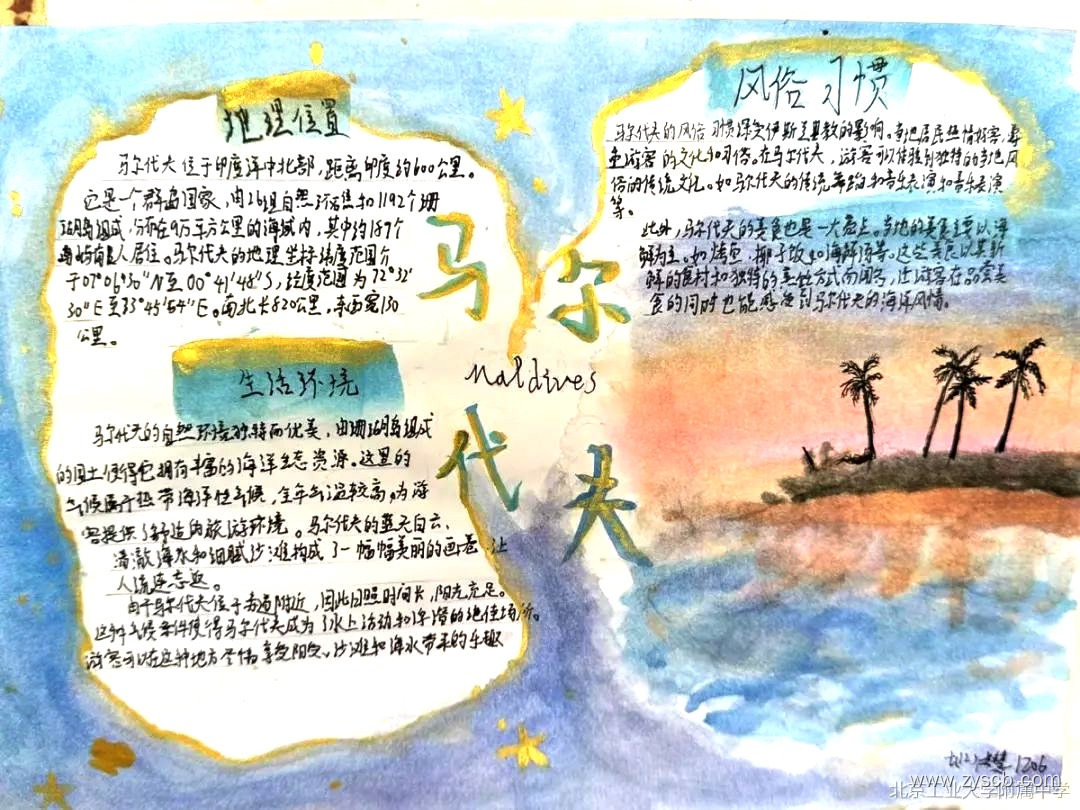 地理位置
马尔代夫位于印度洋中北部,距离印度约600公里。
它是一个群岛国家,由26组自然环礁和1192个珊
瑚岛组成,分布在9万平方公里的海域内,其中约187个
岛屿有人居住。马尔代夫的地理坐标纬度范围介
于07°06'30"N至00°41'48"S,经度范围为72°32'
30"E至73°45'54"E。南北长820公里,东西宽130
公里。
生活环境
马尔代夫的自然环境独特而优美,由珊瑚岛组成
的国土使得它拥有丰富的海洋生态资源。这里的
气候属于热带海洋性气候,全年气温较高。为游
客提供了舒适的旅游环境。马尔代夫的蓝天白云、
清澈海水和细腻沙滩构成了一幅幅美丽的画卷,让
人流连忘返。
由于马尔代夫位于赤道附近,因此日照时间长,阳光充足。
这种气候条件使得马尔代夫成为了水上活动和浮潜的绝佳场所。
游客可以在这种地方尽情享受阳光、沙滩和海水带来的乐趣
马尔
Maldives
代夫
风俗习惯
马尔代夫的风俗习惯深受伊斯兰教的影响。当地居民热情好客,尊
重游客的文化和习俗。在马尔代夫,游客可以体验到独特的当地风
俗的传统文化。如马尔代夫的传统舞蹈和音乐表演和音乐表演
等。
此外,马尔代夫的美食也是一大看点。当地的美食主要以海
鲜为主。如烤鱼,椰子饭和海鲜汤等。这些美食以其新
鲜的食材和独特的烹饪方式而闻名,让游客在品尝美
食的同时也能感受到马尔代夫的海洋风情。
1206
www.zyscb.com
北京工业大学附属中学